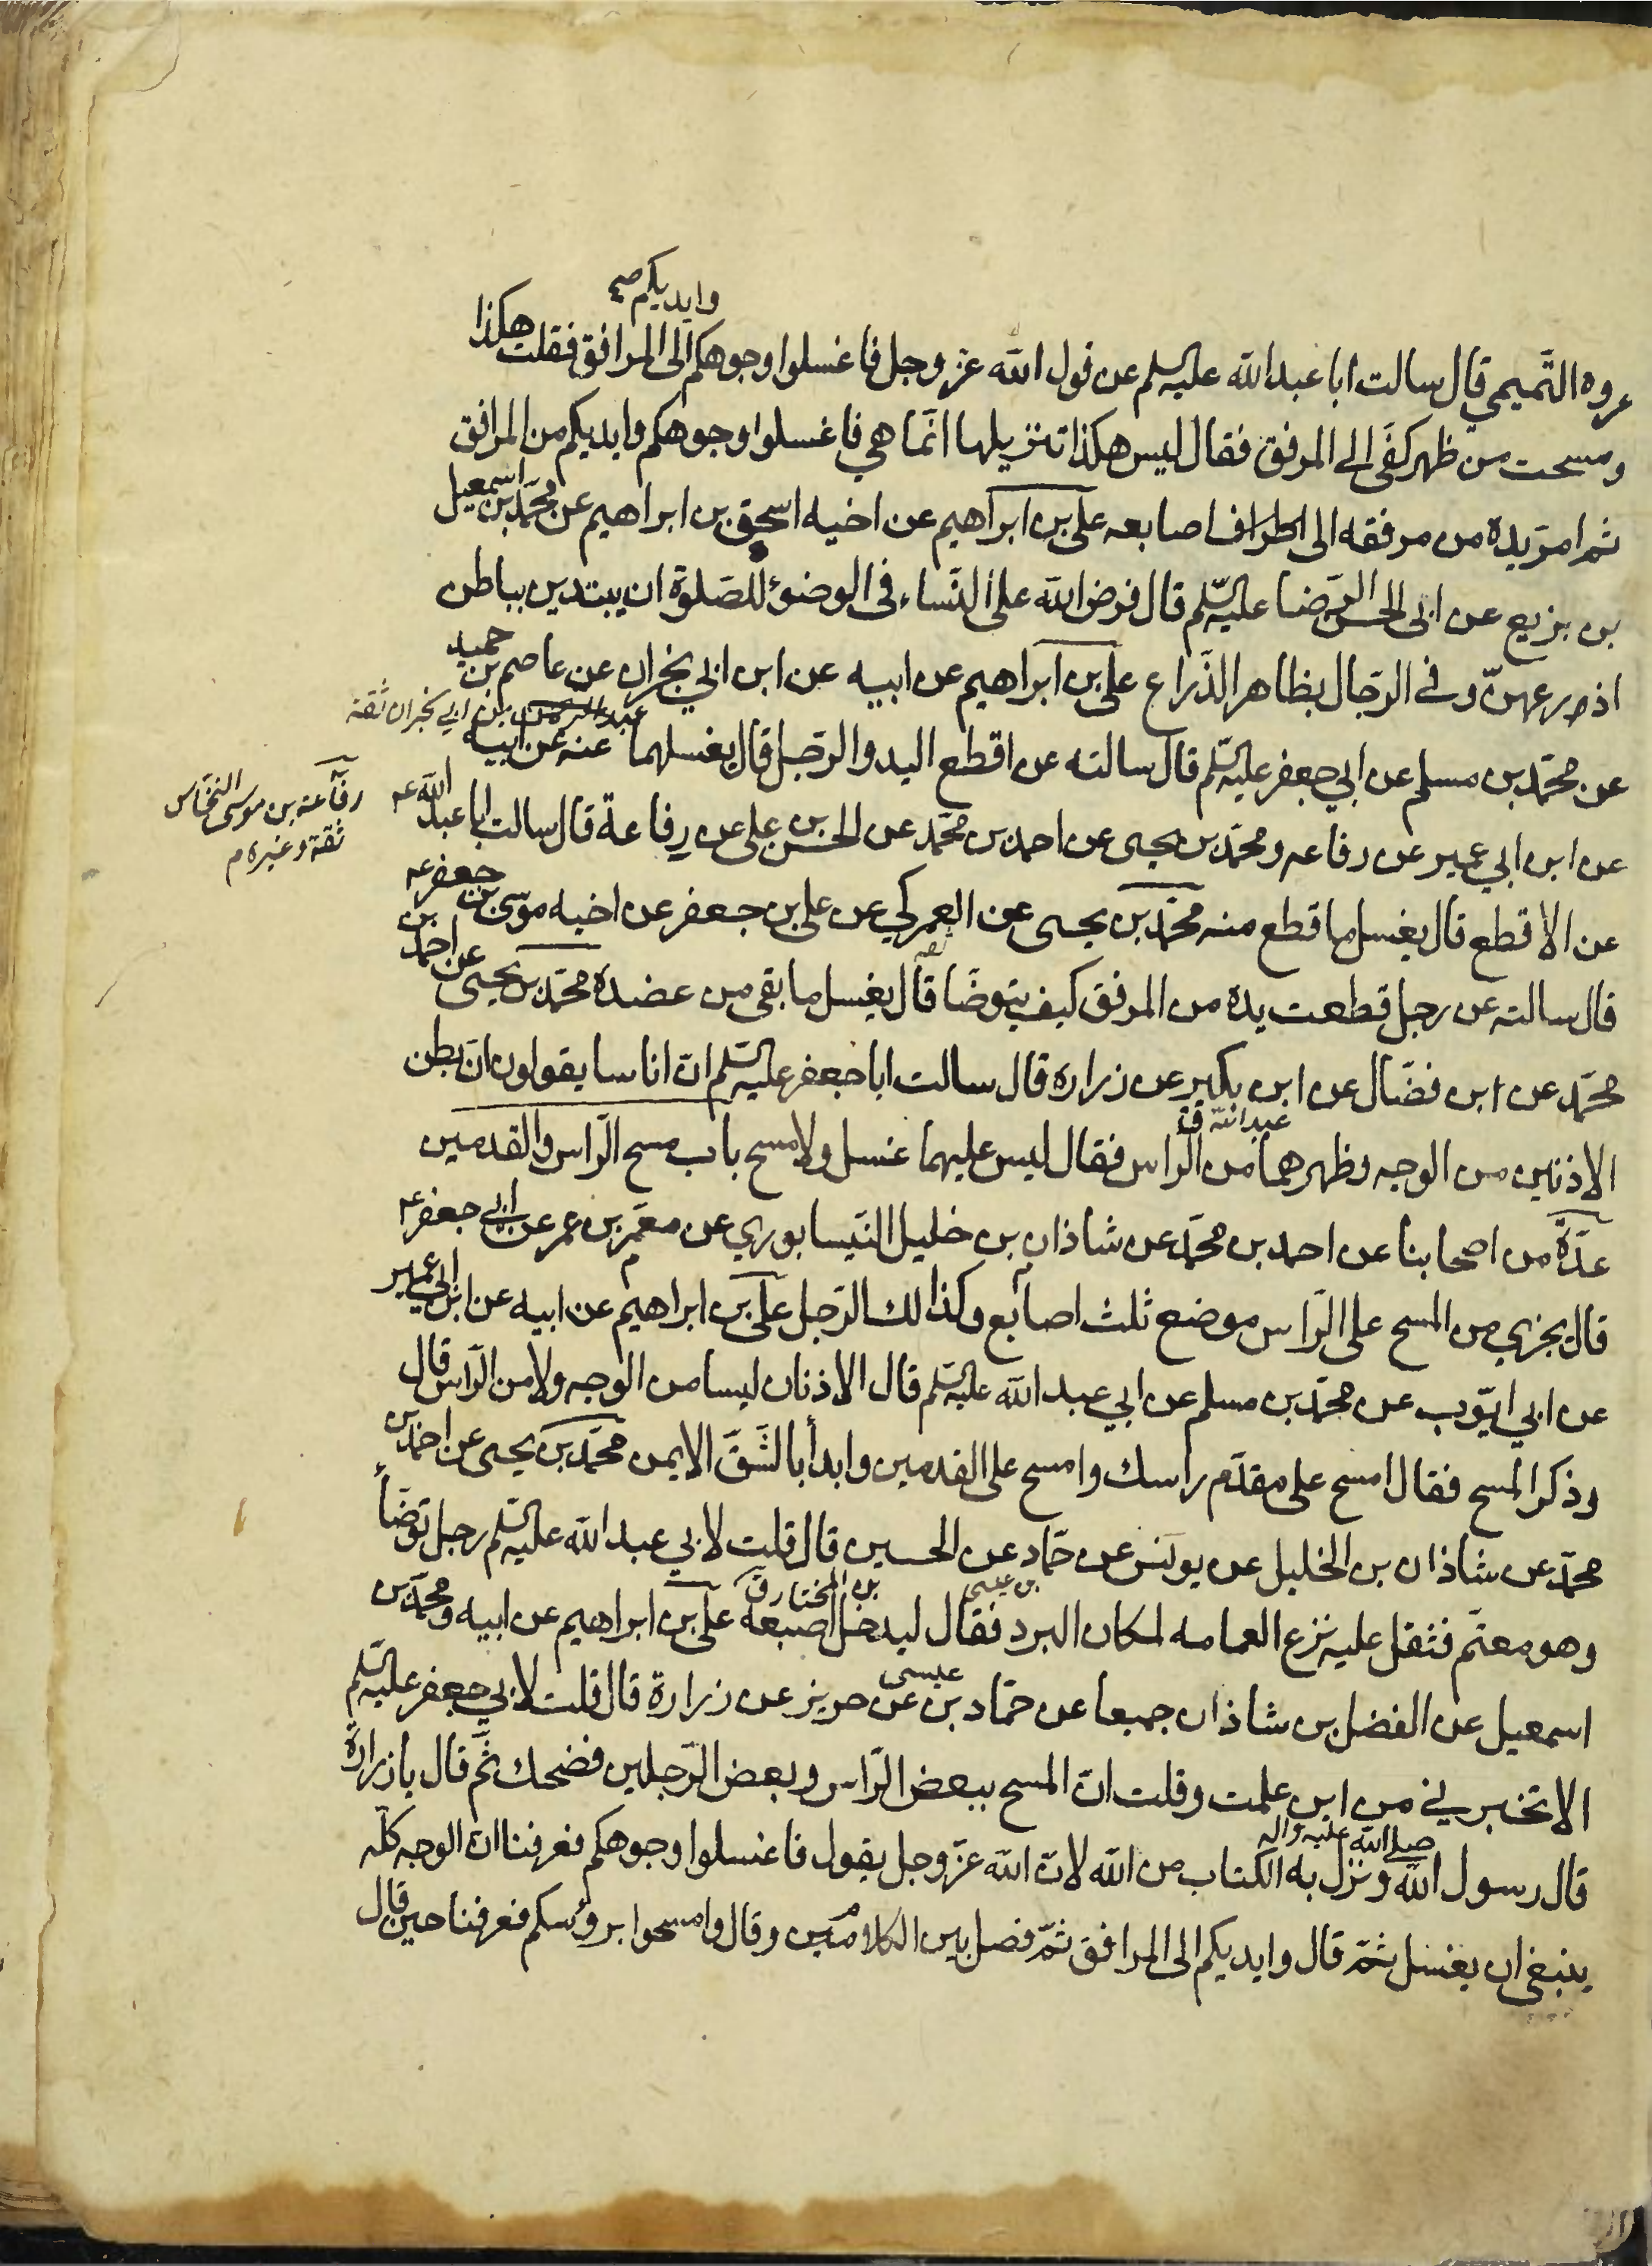 وايديكم صح
عروه التّميمي قال سالت ابا عبد الله عليه السلم عن قول الله عزّ وجل فاغسلوا وجوهكم الى المرافق فقلت هكذا
ومسحت من ظهر كفّى الى المرفق فقال ليس هكذا تنزيلها انّما هي فاغسلوا وجوهكم وايديكم من المرافق
ثم امرّ يده من مرفقه الى اطراف اصابعه على بن ابراهيم عن اخيه اسحق بن ابراهيم عن محمّد بن اسمعيل
بن بزيع عن ابى الحسن الرّضا عليه السّلم قال فرض الله على النّساء فى الوضوء للصّلوة ان يبتدين بباطن
اذرعهنّ وفى الرّجال بظاهر الذّراع على بن ابراهيم عن ابيه عن ابن ابي نجران عن عاصم بن حميد
عبد الرحمن بن ابي نجران ثقة
عن محمّد بن مسلم عن ابي جعفر عليه السّلم قال سالته عن اقطع اليد والرّجل قال يغسلهما عنه عن ابيه
رفاعة بن موسى النخّاس
ثقة وغيره م
عن ابن ابي عمير عن رفاعه ومحمّد بن يحيى عن احمد بن محمّد عن الحسن بن على عن رفاعة قال سالت ابا عبد الله عه
عن الاقطع قال يغسل ما قطع منه محمّد بن يحيى عن العمركي عن على بن جعفر عن اخيه موسى بن جعفر عه
قال سالته عن رجل قطعت يده من المرفق كيف يتوضّا قال يغسل ما بقى من عضده محمّد بن يحيى عن احمد بن
محمّد عن ابن فضّال عن ابن بكير عن زراره قال سالت ابا جعفر عليه السّلم انّ اناسا يقولون انّ بطن
عبد الله ق
الاذنين من الوجه وظهرهما من الراس فقال ليس عليهما غسل ولا مسح باب مسح الرّاس والقدمين
عدّة من اصحابنا عن احمد بن محمّد عن شاذان بن خليل النّيسابوري عن معمّر بن عمر عن ابي جعفر عه
قال يجزي من المسح على الرّاس موضع ثلث اصابع وكذالك الرّجل على بن ابراهيم عن ابيه عن ابن ابي عمير
عن ابي ايّوب عن محمّد بن مسلم عن ابي عبد الله عليه السّلم قال الاذنان ليسا من الوجه ولا من الرّاس قال
وذكر المسح فقال امسح على مقدّم راسك وامسح على القدمين وابدأ بالشّقّ الايمن محمّد بن يحيى عن احمد بن
محمّد عن شاذان بن الخليل عن يونس عن حمّاد عن الحسين قال قلت لابي عبد الله عليه السّلم رجل توضّأ
بن عيسى بن المختار ق
وهو معتمّ فثقل عليه نزع العمامه لمكان البرد فقال ليدخل اصبعه على بن ابراهيم عن ابيه ومحمّد بن
اسمعيل عن الفضل بن شاذان جميعا عن حمّاد بن عيسى عن حريز عن زرارة قال قلت لابي جعفر عليه السّلم
الا تخبرني من اين علمت وقلت انّ المسح ببعض الرّاس وبعض الرّجلين فضحك ثمّ قال يا زرارة
صلى الله عليه واله
قال رسول الله ونزل به الكتاب من الله لانّ الله عزّ وجل يقول فاغسلوا وجوهكم فعرفنا انّ الوجه كلّه
ينبغى ان يغسل ثمّ قال وايديكم الى المرافق ثمّ فصل بين الكلامين وقال وامسحوا برؤسكم فعرفنا حين قال